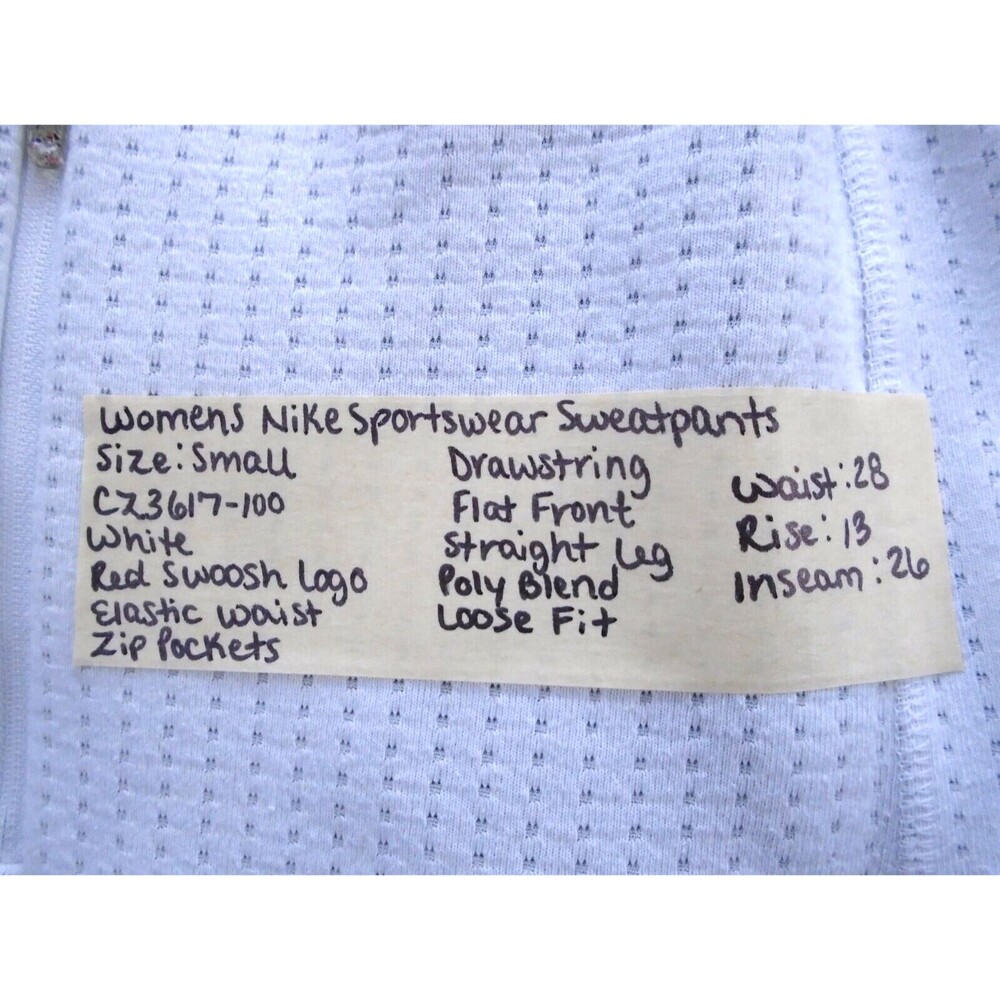 Womens Nike Sportswear Sweatpants
Size: Small
CZ3617-100
White
Red Swoosh Logo
Elastic Waist
Zip Pockets
Drawstring
Flat Front
Straight Leg
Poly Blend
Loose Fit
Waist: 28
Rise: 13
Inseam: 26